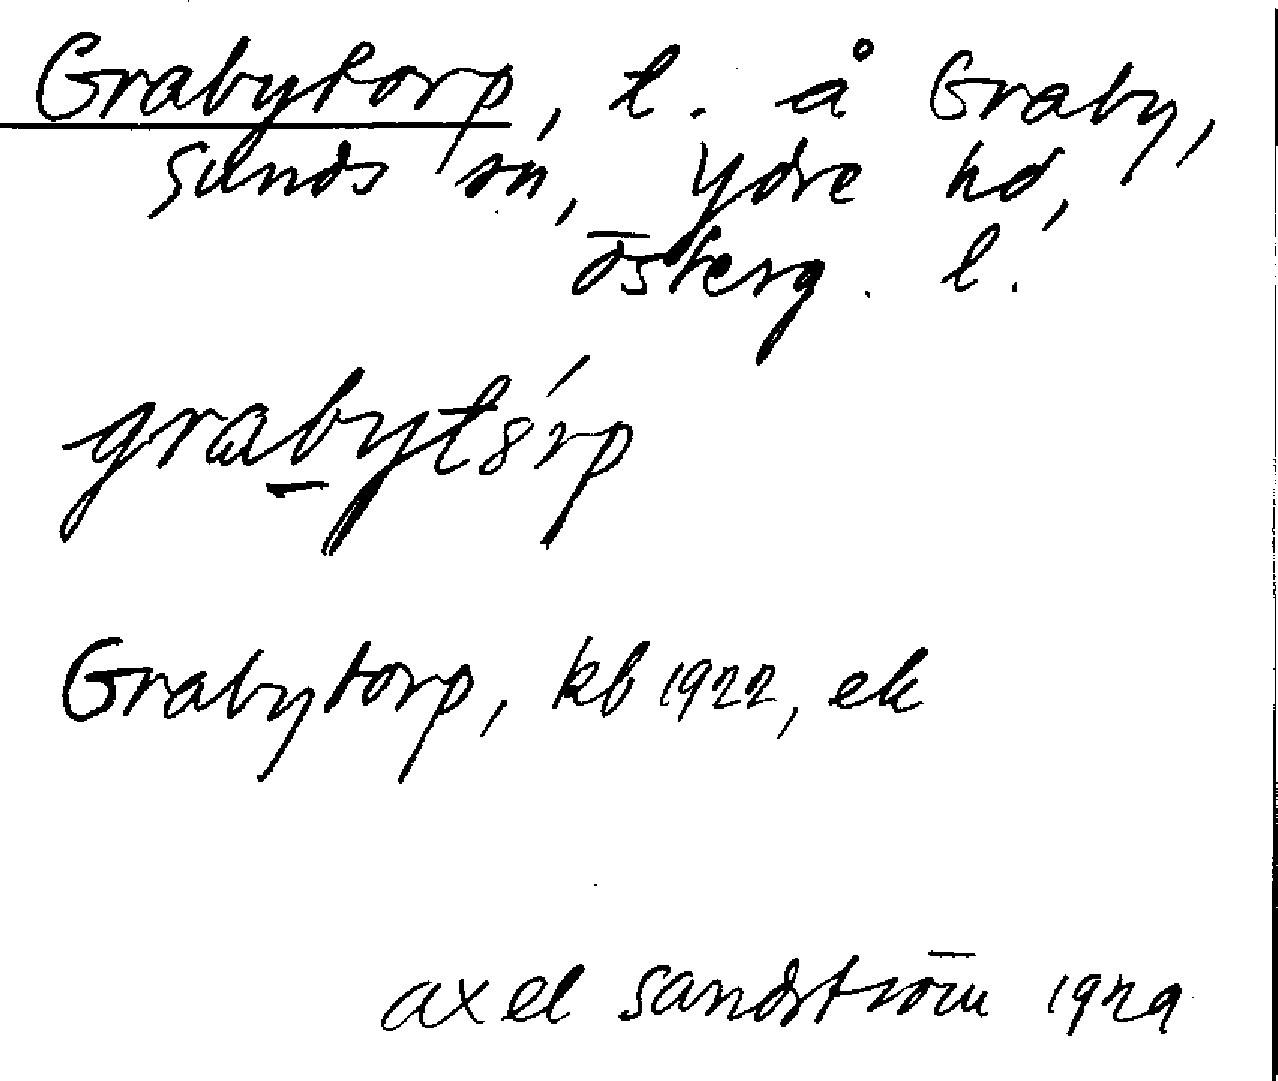 Grabytorp, t. å Graby,
Sunds sn, Ydre hd,
Österg. l.
grabytórp
Grabytorp, kb 1922, ek
axel sandström 1929